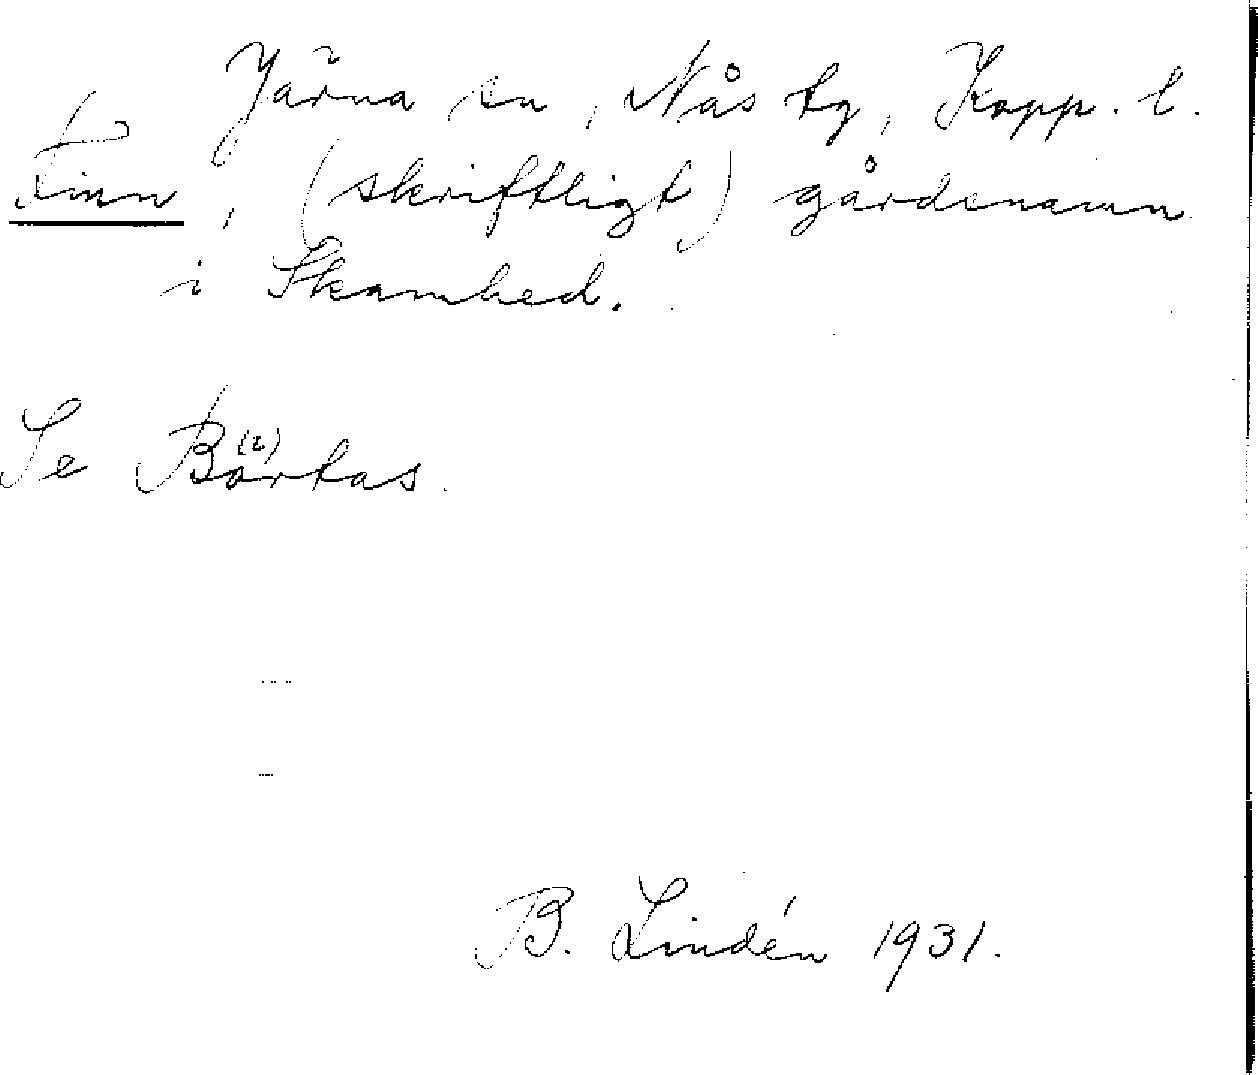 Järna sn, Nås tg, Kopp. l.
Finn, (skriftligt) gårdsnamn
i Skamhed.
Se Börtas.
B. Lindén 1931.